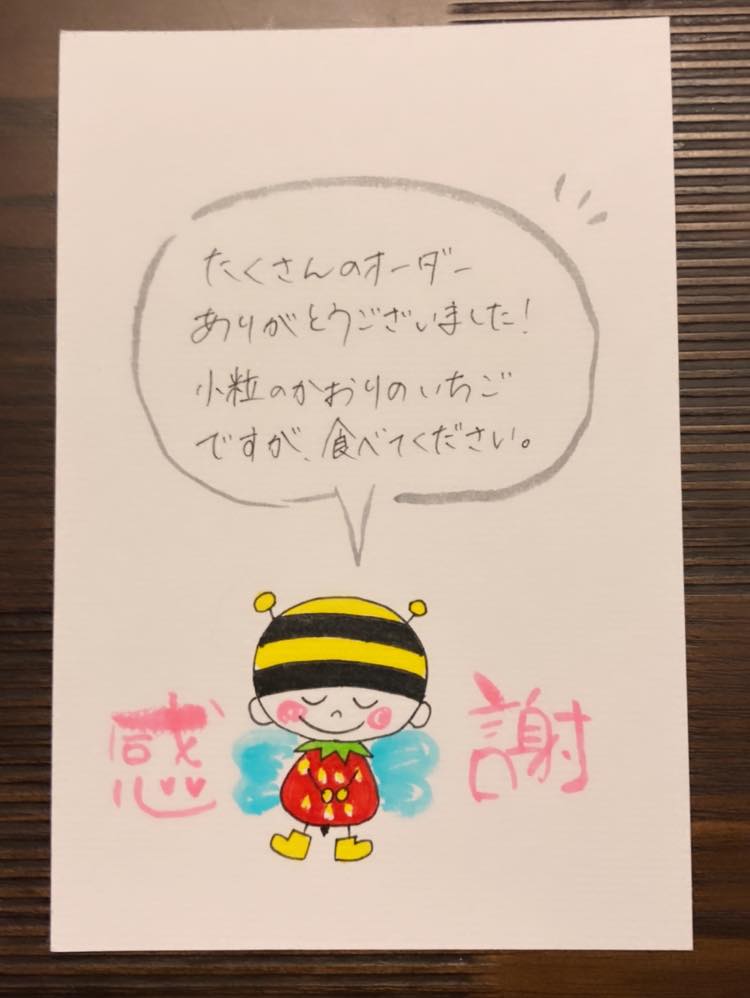 たくさんのオーダー
ありがとうございました!
小粒のかおりのいちご
ですが、食べてください。
感謝